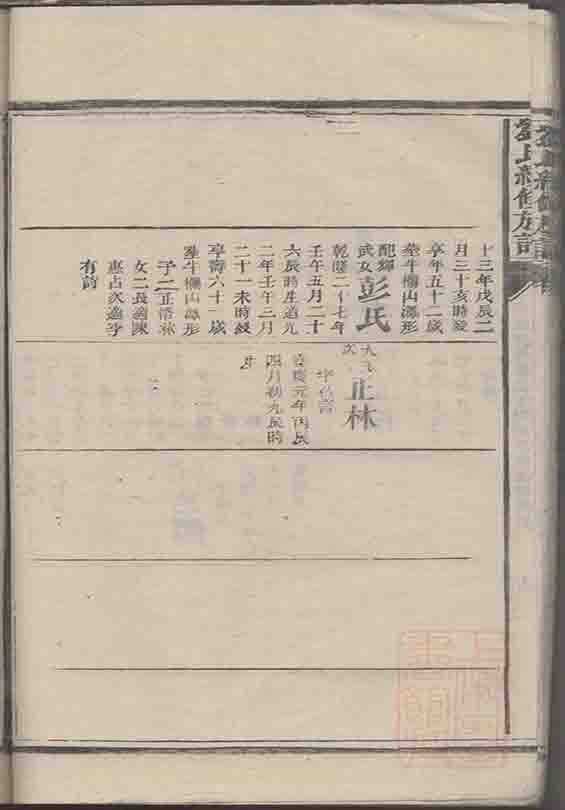 十三年戊辰二
月三十亥時歿
葬牛欄山馮形
享年五十二歲
配輝
武女彭氏
乾隆二十七年
壬午五月二十
六辰時生道光
二年壬午二月
二十一未時歿
享壽六十一歲
葬牛欄山馮形
子二正悟林
女二長適陳
惠占次適李
有訂
次 正林
嘉慶元年丙辰
四月初九辰時
生